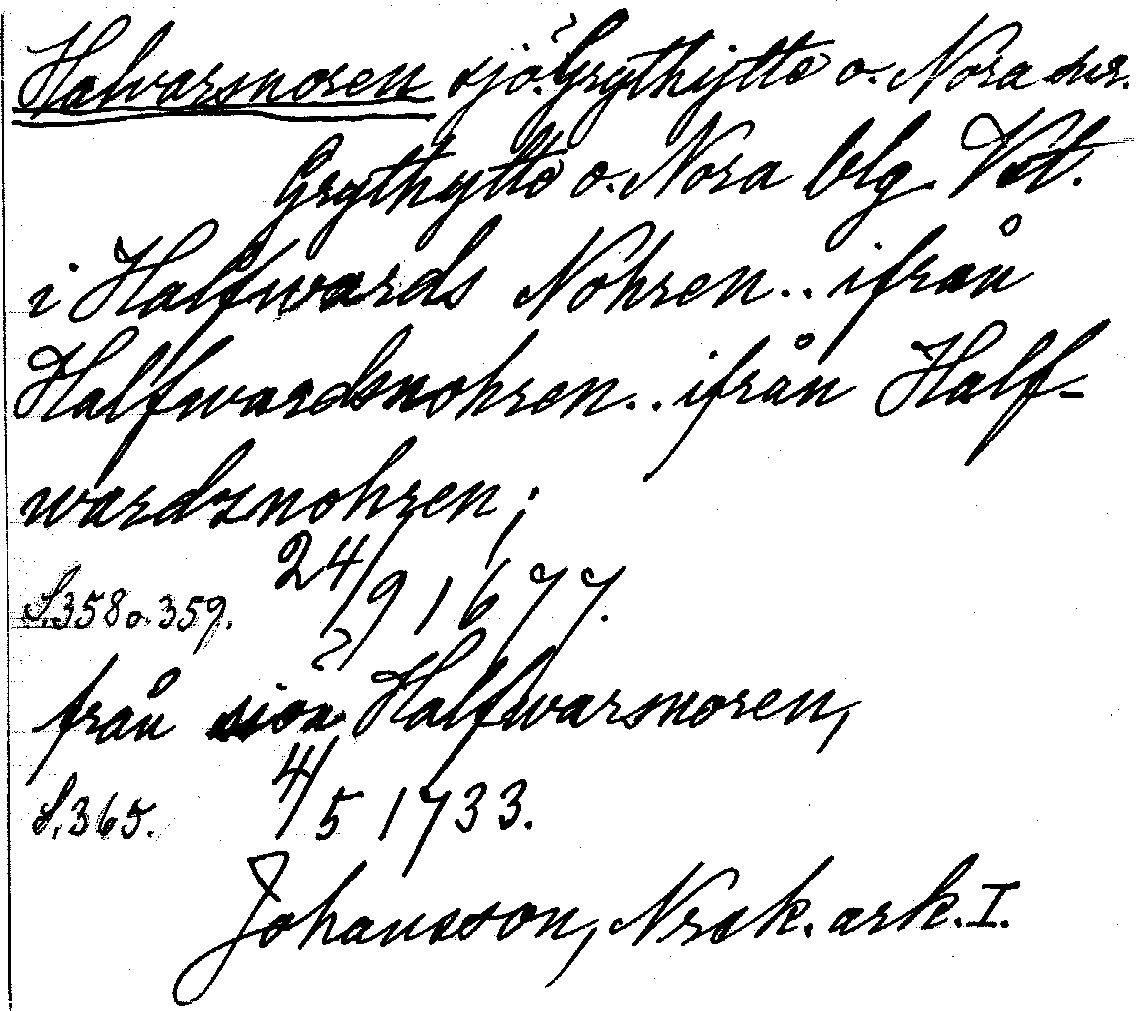 Halvarsnoren sjö. Grythytte o. Nora snr.
Grythytte o. Nora blg. Vstl.
i Halfwards Nohren.. ifrån
Halfwardsnohren.. ifrån Half-
wardsnohren;
S. 358 o. 359. 24/9 1677.
från siön Halfwarsnoren,
S. 365. 4/5 1733.
Johansson, Nrsk. ark. I.